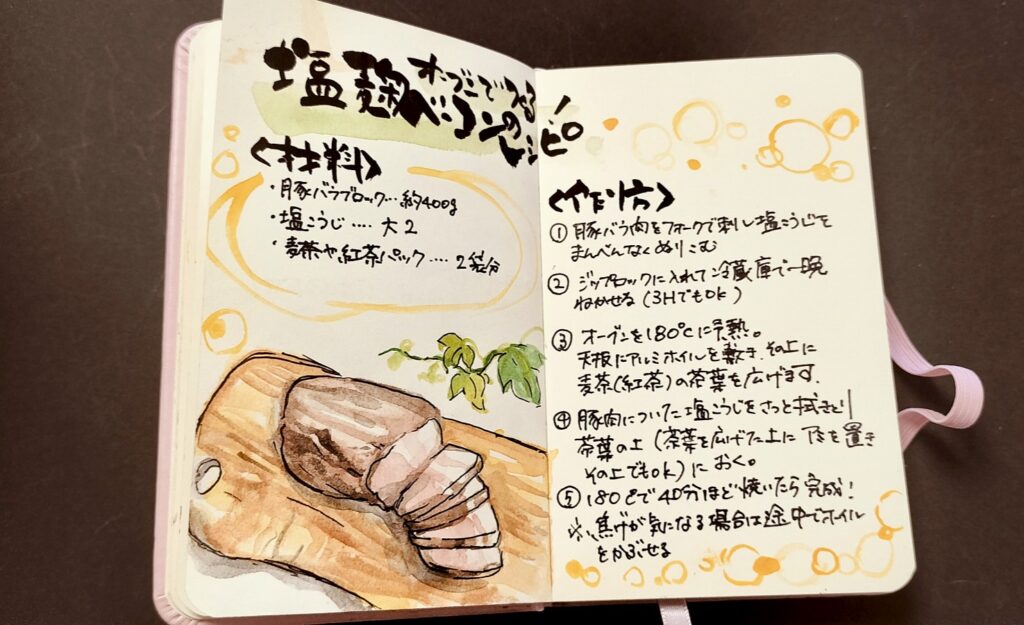 塩麹オーブンでつくる
ベーコンの
レシピ!
<材料>
・豚バラブロック…約400g
・塩こうじ‥‥大2
・麦茶や紅茶パック‥‥2袋分
<作り方>
①豚バラ肉をフォークで刺し塩こうじを
まんべんなくぬりこむ
②ジップロックに入れて冷蔵庫で一晩
ねかせる(3Hでもok)
③オーブンを180℃に予熱。
天板にアルミホイルを敷き、その上に
麦茶(紅茶)の茶葉を広げます。
④豚肉についた塩こうじをさっと拭きとり
茶葉の上(茶葉を広げた上に を置き
その上でもok)におく。
⑤180℃で40分ほど焼いたら完成!
※焦げが気になる場合は途中でホイル
をかぶせる